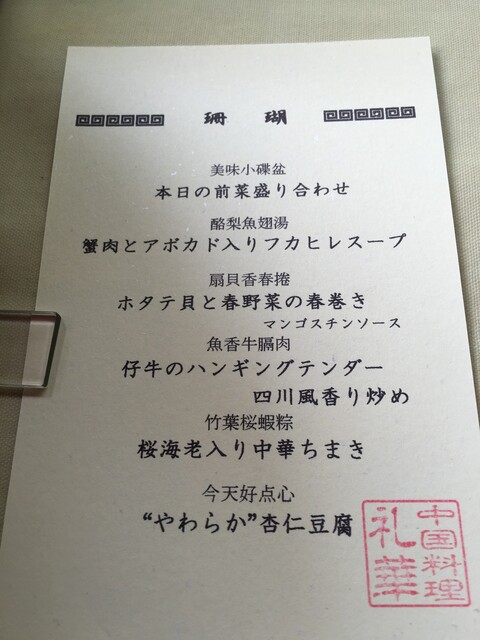 珊瑚
美味小碟盆
本日の前菜盛り合わせ
酪梨魚翅湯
蟹肉とアボカド入りフカヒレスープ
扇貝香春捲
ホタテ貝と春野菜の春巻き
マンゴスチンソース
魚香牛膈肉
仔牛のハンギングテンダー
四川風香り炒め
竹葉桜蝦粽
桜海老入り中華ちまき
今天好点心
“やわらか”杏仁豆腐
中国料理
礼華